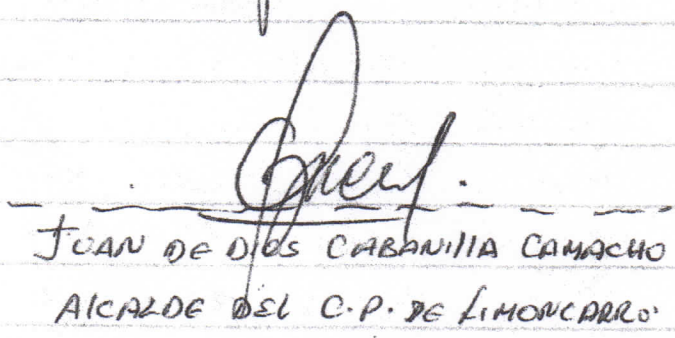 JUAN DE DIOS CABANIllA CAMACHO
AlCALDE DEL C.P. DE LIMONCARRO